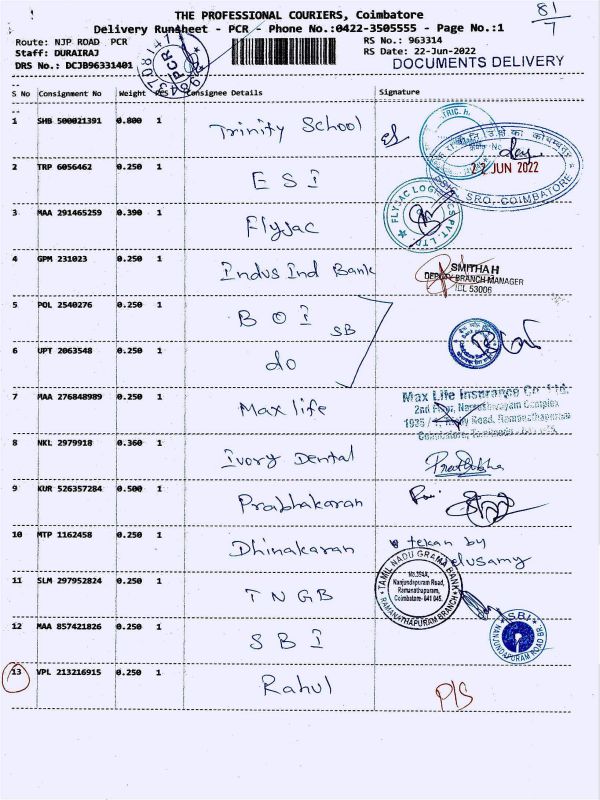 81/7
THE PROFESSIONAL COURIERS, Coimbatore
Delivery Runsheet - PCR - Phone No.:0422-3505555 - Page No.:1
Route: NJP ROAD PCR
RS No.: 963314
Staff: DURAIRAJ
RS Date: 22-Jun-2022
DRS No.: DCJB96331401
PCR
DOCUMENTS DELIVERY
S No Consignment No Weight PCS Consignee Details Signature
1 SHB 500021391 0.800 1 Trinity School
2 TRP 6056462 0.250 1 ESI
22 JUN 2022
SRO, COIMBATORE
3 MAA 291465259 0.390 1 Flyjac
FLYJAC LOGISTICS PVT. LTD.
4 GPM 231023 0.250 1 Indus Ind Bank
SMITHA H
DEPUTY BRANCH MANAGER
IBL 53006
5 POL 2540276 0.250 1 BOI SB
6 UPT 2063548 0.250 1 do
7 MAA 276848989 0.250 1 Max life
Max Life Insurance Co. Ltd.
2nd Floor, Complex
Road, Ramanathapuram
8 NKL 2979918 0.360 1 Ivory Dental
9 KUR 526357284 0.500 1 Prabhakaran
10 MTP 1162458 0.250 1 Dhinakaran
tekan by
elusamy
11 SLM 297952824 0.250 1 TNGB
TAMIL NADU GRAMA BANK
Nanjundapuram Road,
Ramanathapuram,
Coimbatore- 641 045.
RAMANATHAPURAM BRANCH
12 MAA 857421826 0.250 1 SBI
SBI
NANJUNDAPURAM ROAD BR
13 VPL 213216915 0.250 1 Rahul
P/S